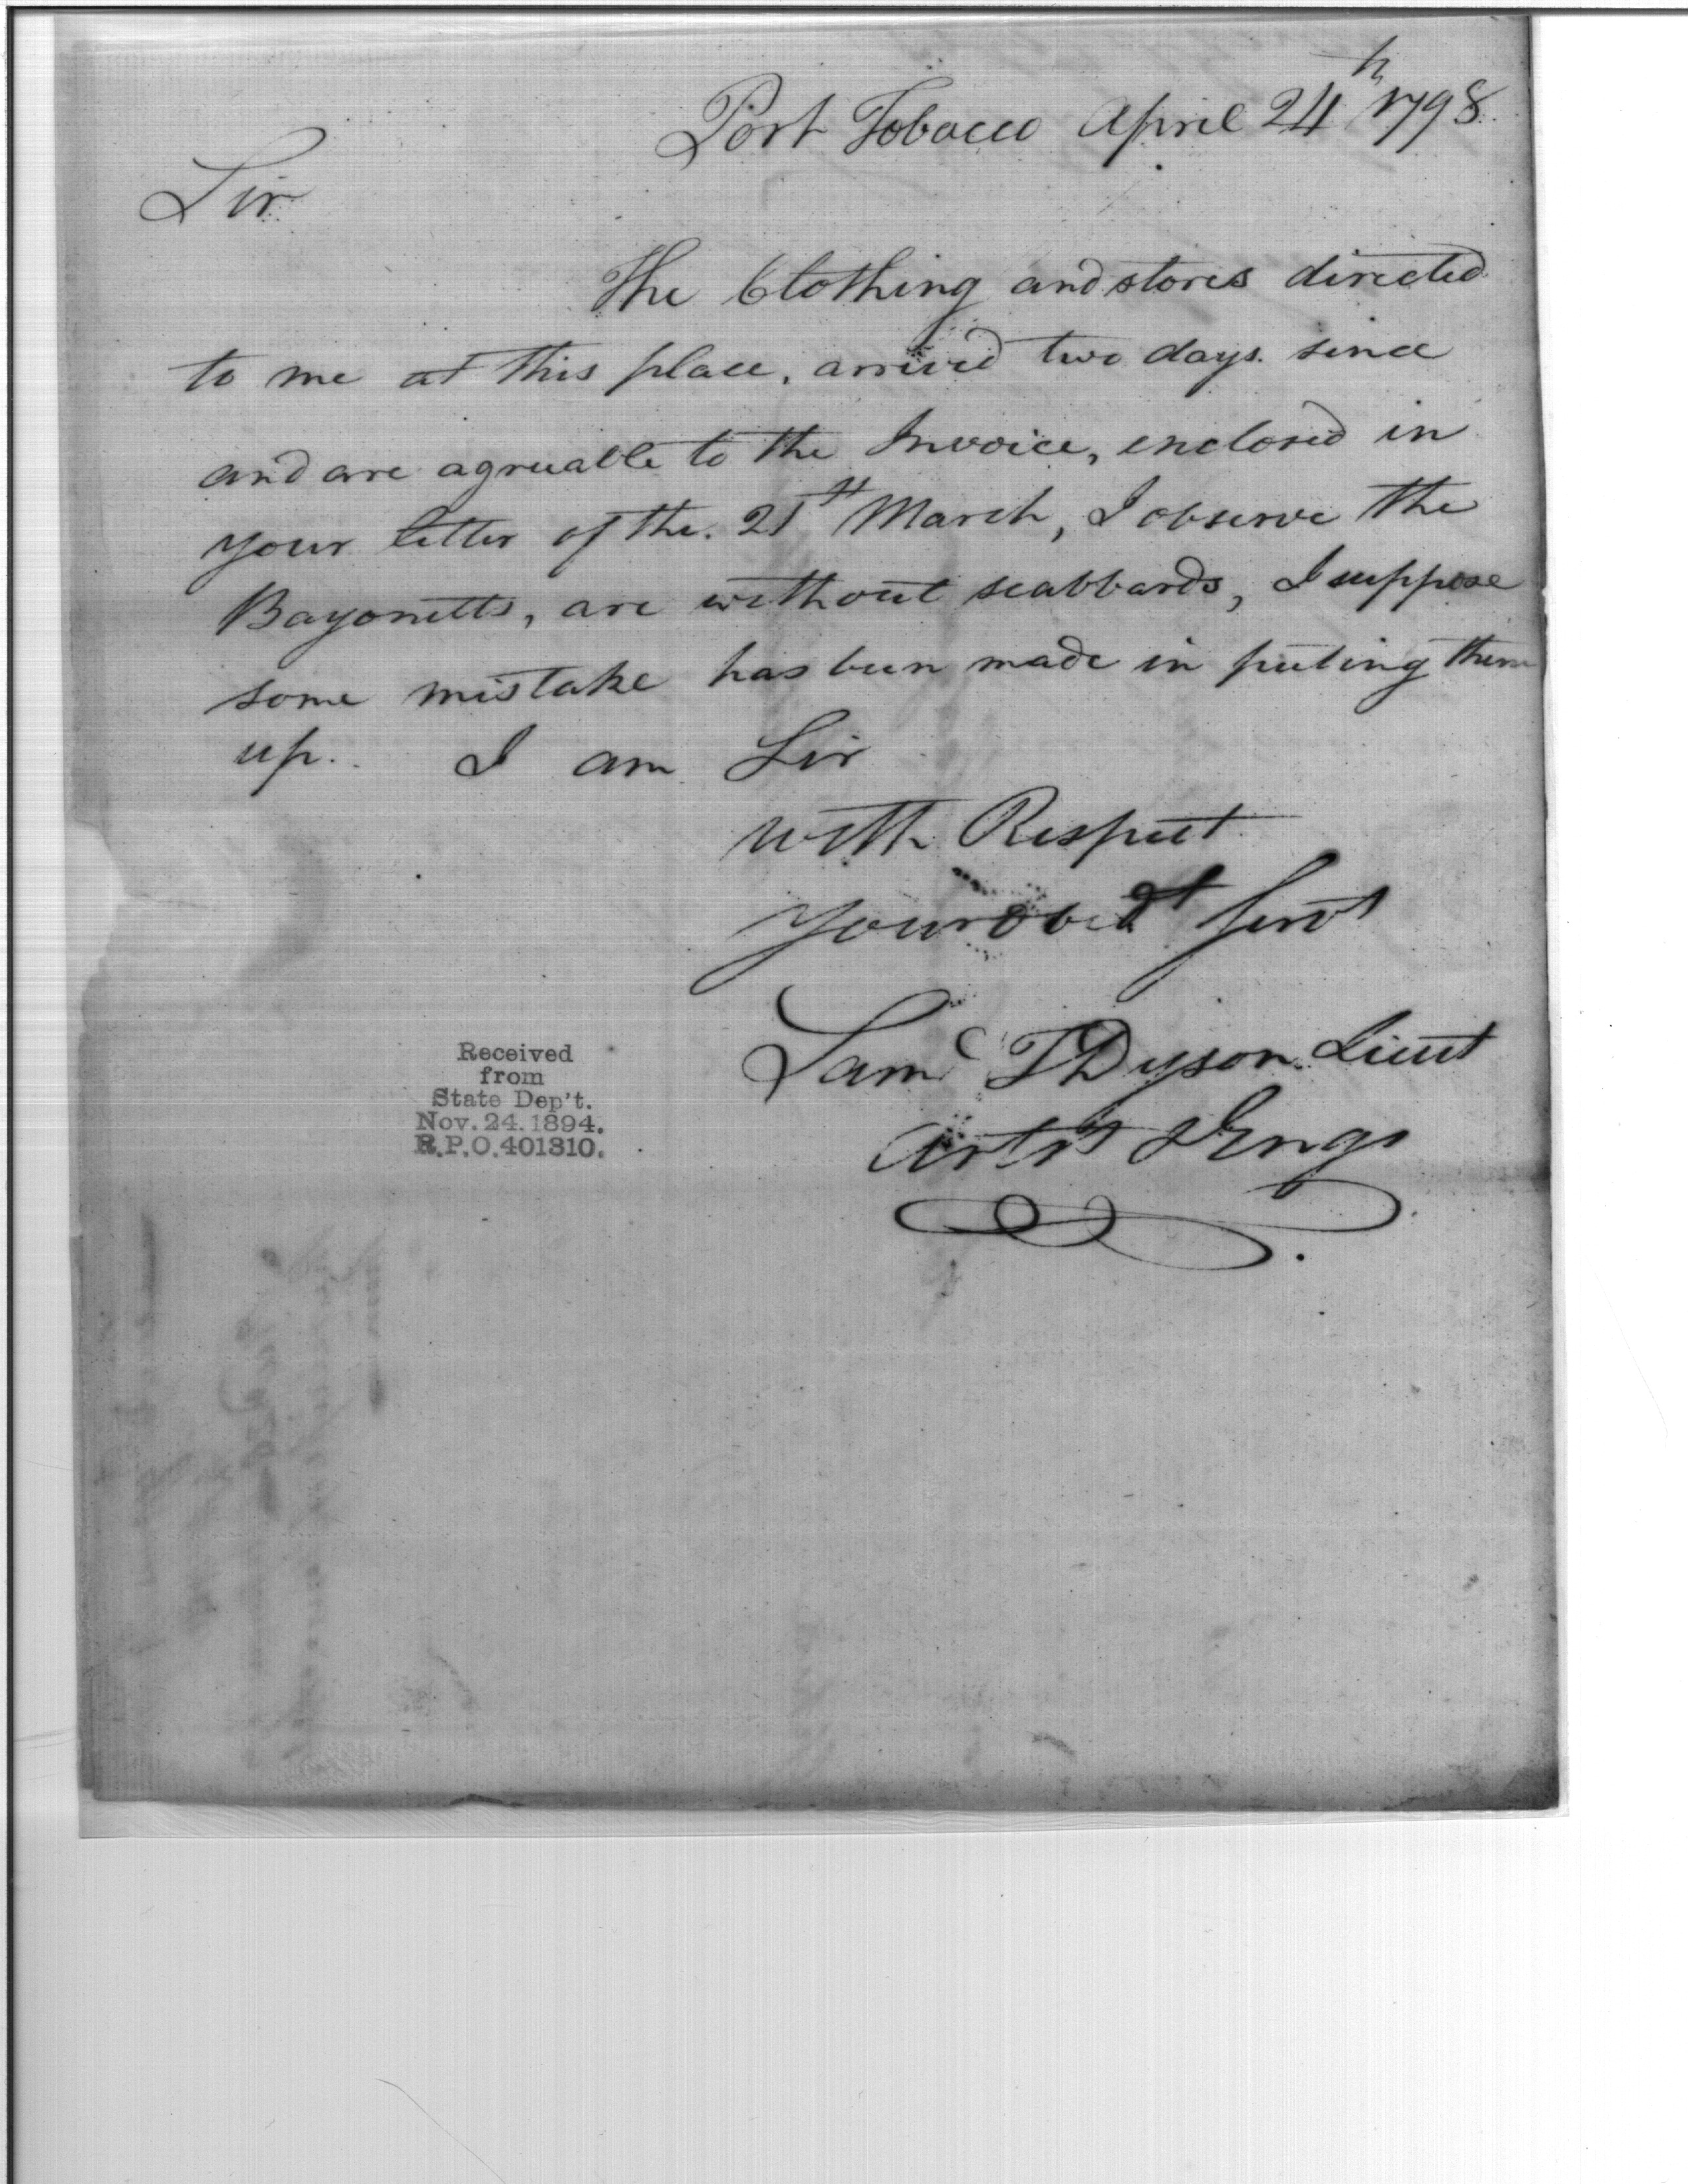 Port Tobacco April 24th 1798.
Sir
The Clothing and stores directed
to me at this place, arrived two days since
and are agreeable to the Invoice, enclosed in
your letter of the 21st March, I observe the
Bayonetts, are without scabbards, I suppose
some mistake has been made in puting them
up. I am Sir
with Respect
your obdt Servt
Saml T Dyson Lieut
Artrs & Engs
Received
from
State Dep't.
Nov. 24. 1894.
R.P.O. 401310.